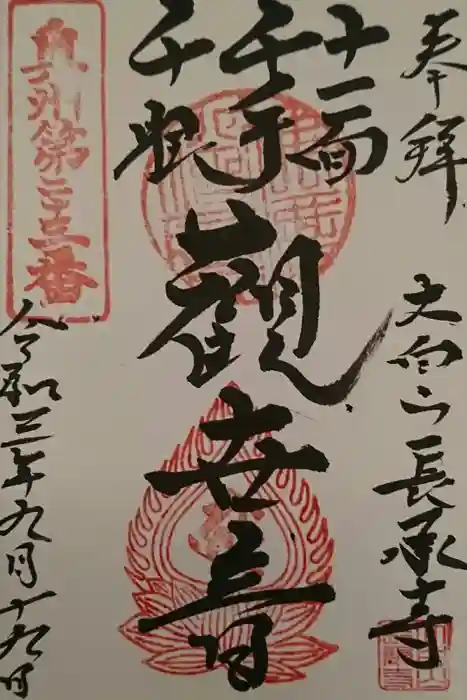 奉拝
十一面
千手
千眼
觀世音
大白山長承寺
奥州第二十三番
令和三年九月十九日